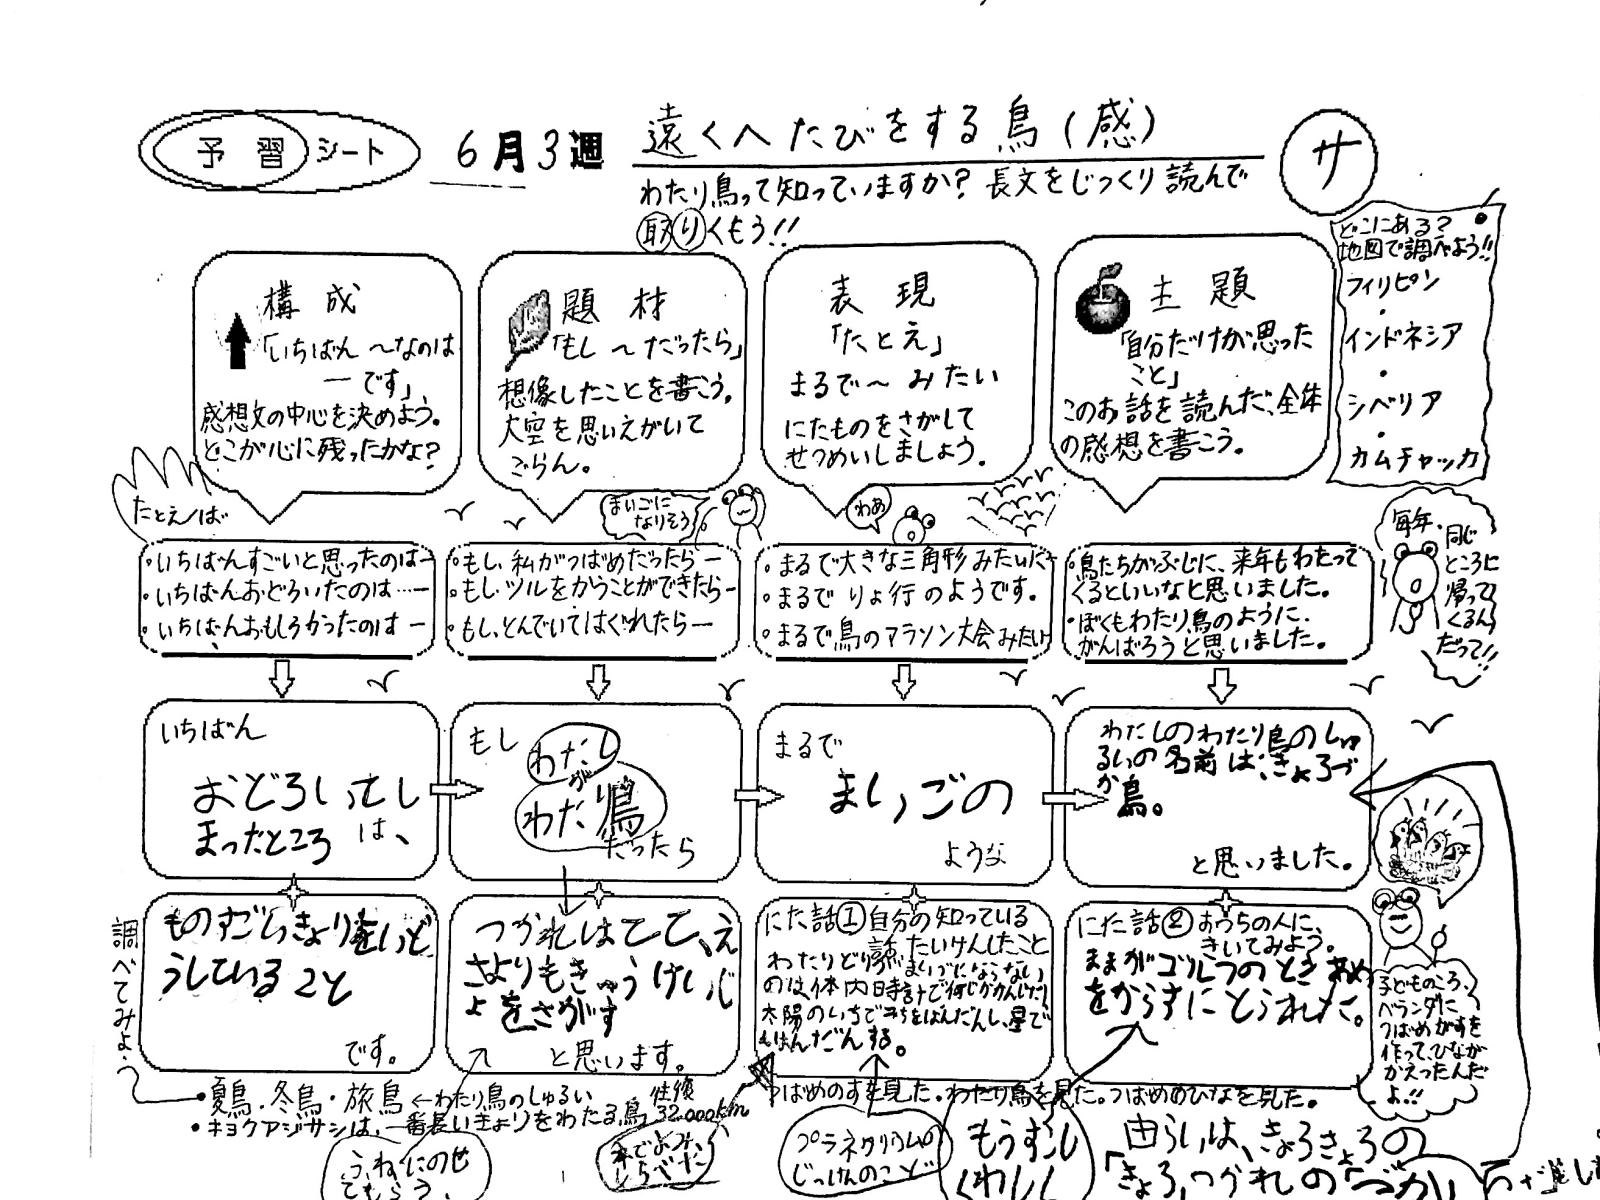 予習シート
6月3週
遠くへたびをする鳥(感)
サ
わたり鳥って知っていますか?長文をじっくり読んで
取りくもう!!
構成
「いちばん〜なのは
ーです」
感想文の中心を決めよう。
どこが心に残ったかな?
題材
「もし〜だったら」
想像したことを書こう。
大空を思いえがいて
ごらん。
表現
「たとえ」
まるで〜みたい
にたものをさがして
せつめいしましょう。
主題
「自分だけが思った
こと」
このお話を読んだ、全体
の感想を書こう。
どこにある?
地図で調べよう!!
フィリピン
・
インドネシア
・
シベリア
・
カムチャッカ
たとえば
・いちばんすごいと思ったのはー
・いちばんおどろいたのは…ー
・いちばんおもしろかったのはー
まいごに
なりそう。
・もし、私がつばめだったらー
・もし、ツルをかうことができたらー
・もし、とんでいてはぐれたらー
わあ
・まるで大きな三角形みたいだー
・まるでりょ行のようです。
・まるで鳥のマラソン大会みたい
・鳥たちがぶじに、来年もわたって
くるといいなと思いました。
・ぼくもわたり鳥のように、
がんばろうと思いました。
毎年、
同じ
ところに
帰って
くるん
だって!!
いちばん
おどろいてし
まったところは、
もし
わたし
が
わたり鳥
だったら
まるで
まいごの
ような
わたしのわたり鳥のしゅ
るいの名前は、きょろづ
か鳥。
と思いました。
ものすごいきょりをいど
うしていること
です。
つかれはてて、え
さよりもきゅうけいじ
ょをさがす
と思います。
にた話①自分の知っている
話 たいけんしたこと
わたりどりがまいごにならない
のは、体内時計で何じかかんじたり
太陽のいちで
星で
はんだんする。
にた話②おうちの人に、
きいてみよう。
ままがゴルフのときあめ
をからすにとられた。
子どものころ、
ベランダに
つばめがすを
作って、ひなが
かえったんだ
よ!!
調べてみよう
・夏鳥・冬鳥・旅鳥 ←わたり鳥のしゅるい
・キョクアジサシは、一番長いきょりをわたる鳥 往復32,000km
つばめのすを見た。わたり鳥を見た。つばめのひなを見た。
ふねにのせ
てもらう、
本でよみ、
しらべた
プラネタリウムの
じっけんのこと
もうすこし
くわしく
由らいは、きょろきょろの
「きょろ」、つかれの「づか」